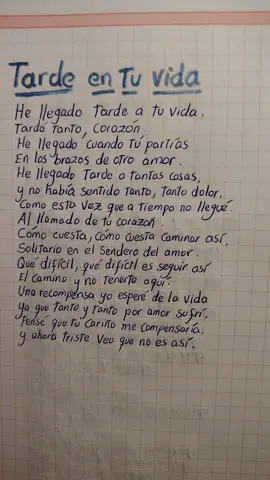 Tarde en Tu vida
He llegado Tarde a tu vida.
Tardé tanto, corazón.
He llegado cuando tú partías
En los brazos de otro amor.
He llegado Tarde a tantas cosas,
y no había sentido tanto, tanto dolor.
Como esta vez que a tiempo no llegué.
Al llamado de tu corazón.
Como cuesta, cómo cuesta caminar así,
Solitario en el Sendero del amor.
Qué difícil, qué difícil es seguir así
El camino y no tenerte aquí.
Una recompensa yo esperé de la vida
ya que tanto y tanto por amor sufrí,
Pensé que tu cariño me compensaría,
y ahora triste veo que no es así.